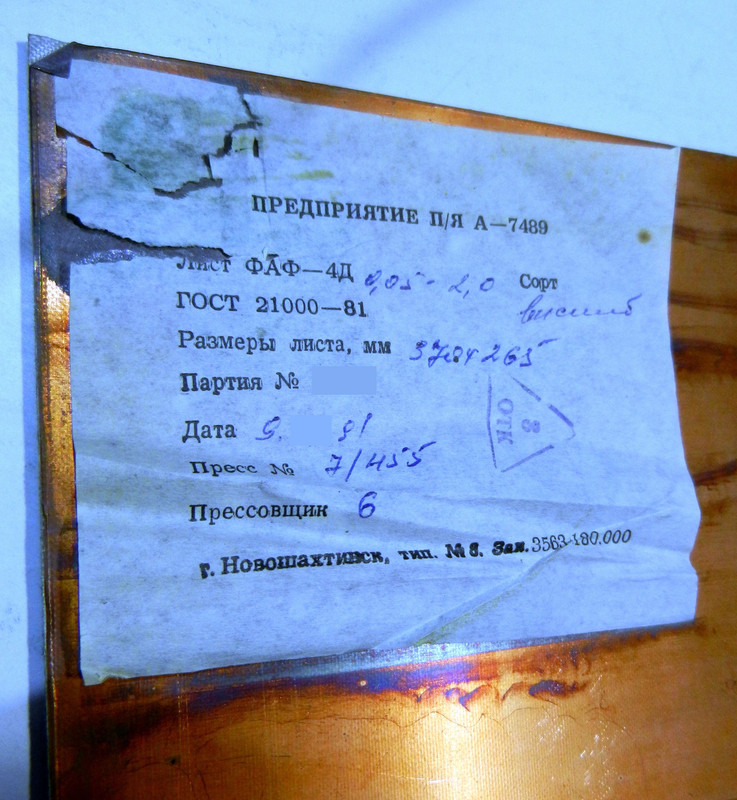 ПРЕДПРИЯТИЕ П/Я А—7489
Лист ФАФ—4Д 0,05 - 2,0 Сорт
ГОСТ 21000—81 высший
Размеры листа, мм
Партия №
Дата 9. 91
Пресс № 7/455
Прессовщик 6
г. Новошахтинск, тип. № 8. Зак. 3563-180.000
ОТК